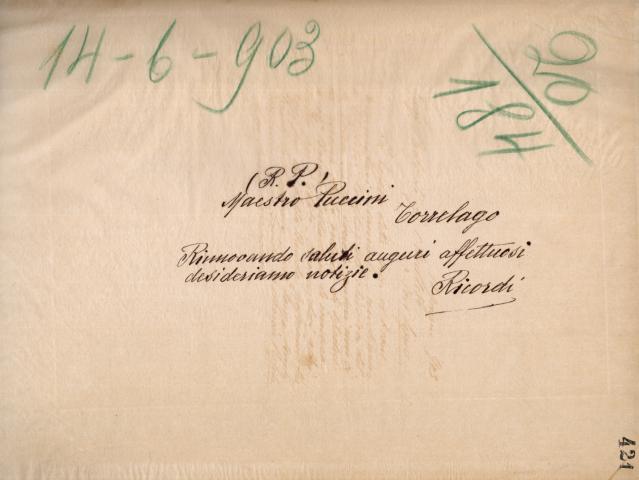 14-6-903
184/26
(R. P.)
Maestro Puccini
Torrelago
Rinnovando saluti auguri affettuosi
desideriamo notizie.
Ricordi
421